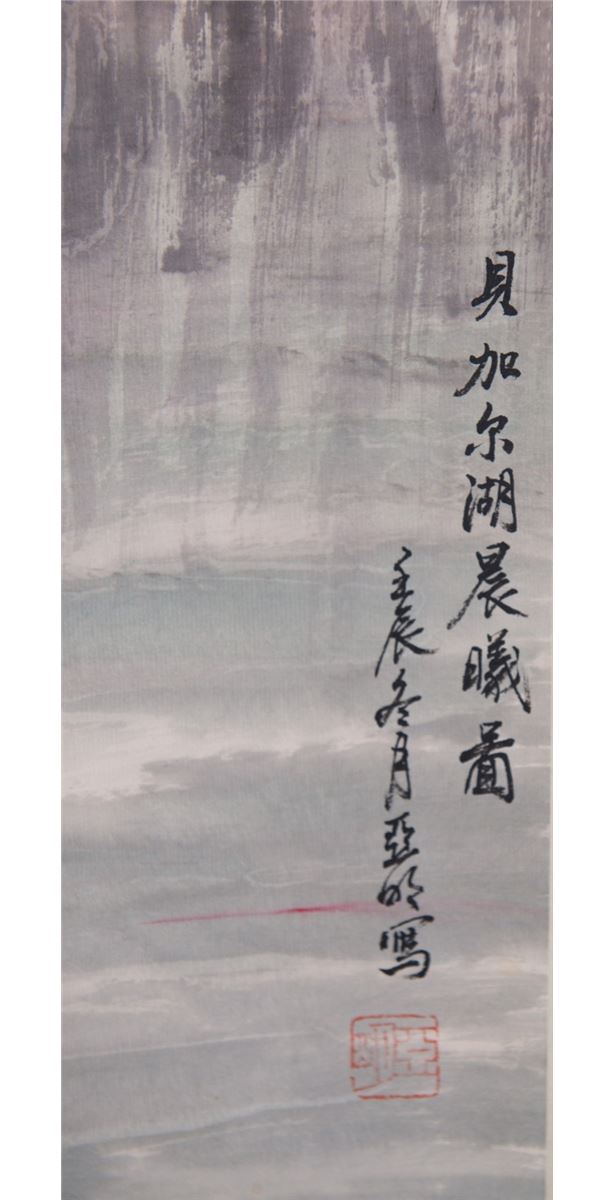 貝加尔湖晨曦啚
壬辰冬月亞明寫
亞明